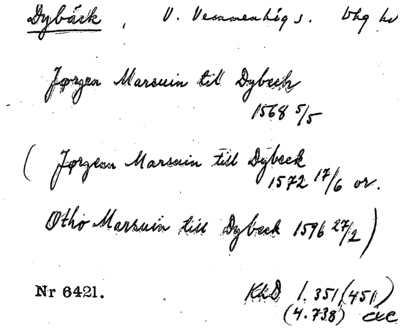 Dybäck, V. Vemmenhögs. Vhg hd
Jørgen Marsuin till Dybech
1568 5/5
(Jørgen Marsuin till Dybeck
1572 17/6 or.
Otho Marsuin till Dybeck 1596 27/2)
Nr 6421. KhD 1.351 (451)
(4.738)